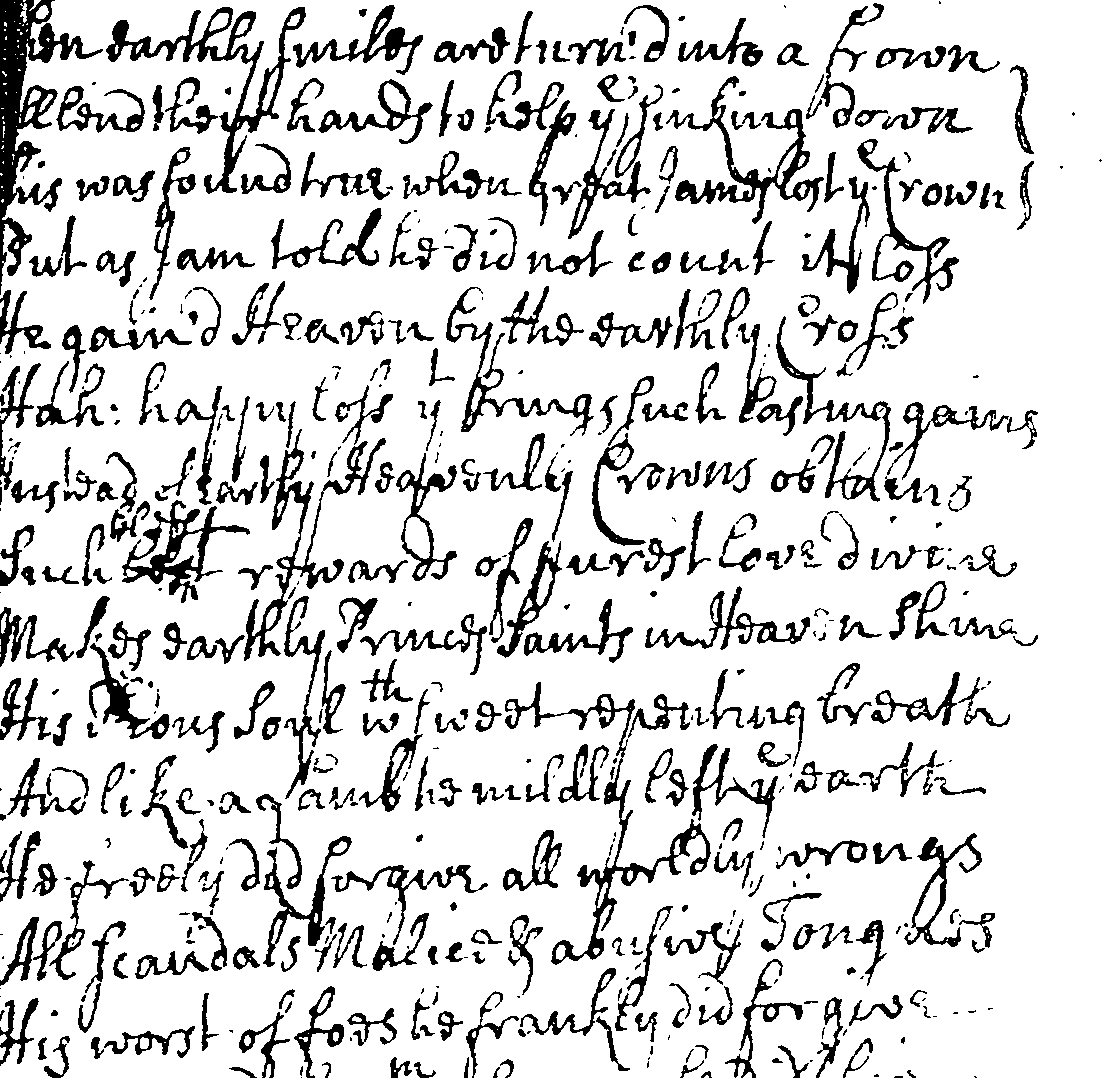 hen earthly smiles are turn'd into a frown
All lend their hands to help yᵉ sinking down
This was found true when great James lost yᵉ Crown
But as I am told he did not count it loss
He gain'd Heaven by the earthly Cross
Hah: happy loss yᵗ brings such lasting gains
Instead of Earthly Heavenly Crowns obtains
Such blest rewards of purest love divine
Makes earthly Princes Saints in Heaven Shine
His pious Soul wᵗʰ sweet repenting breath
And like a Lamb he mildly left yᵉ earth
He freely did forgive all worldly wrongs
All scandals Malice & abusive Tongues
His worst of foes he frankly did forgive